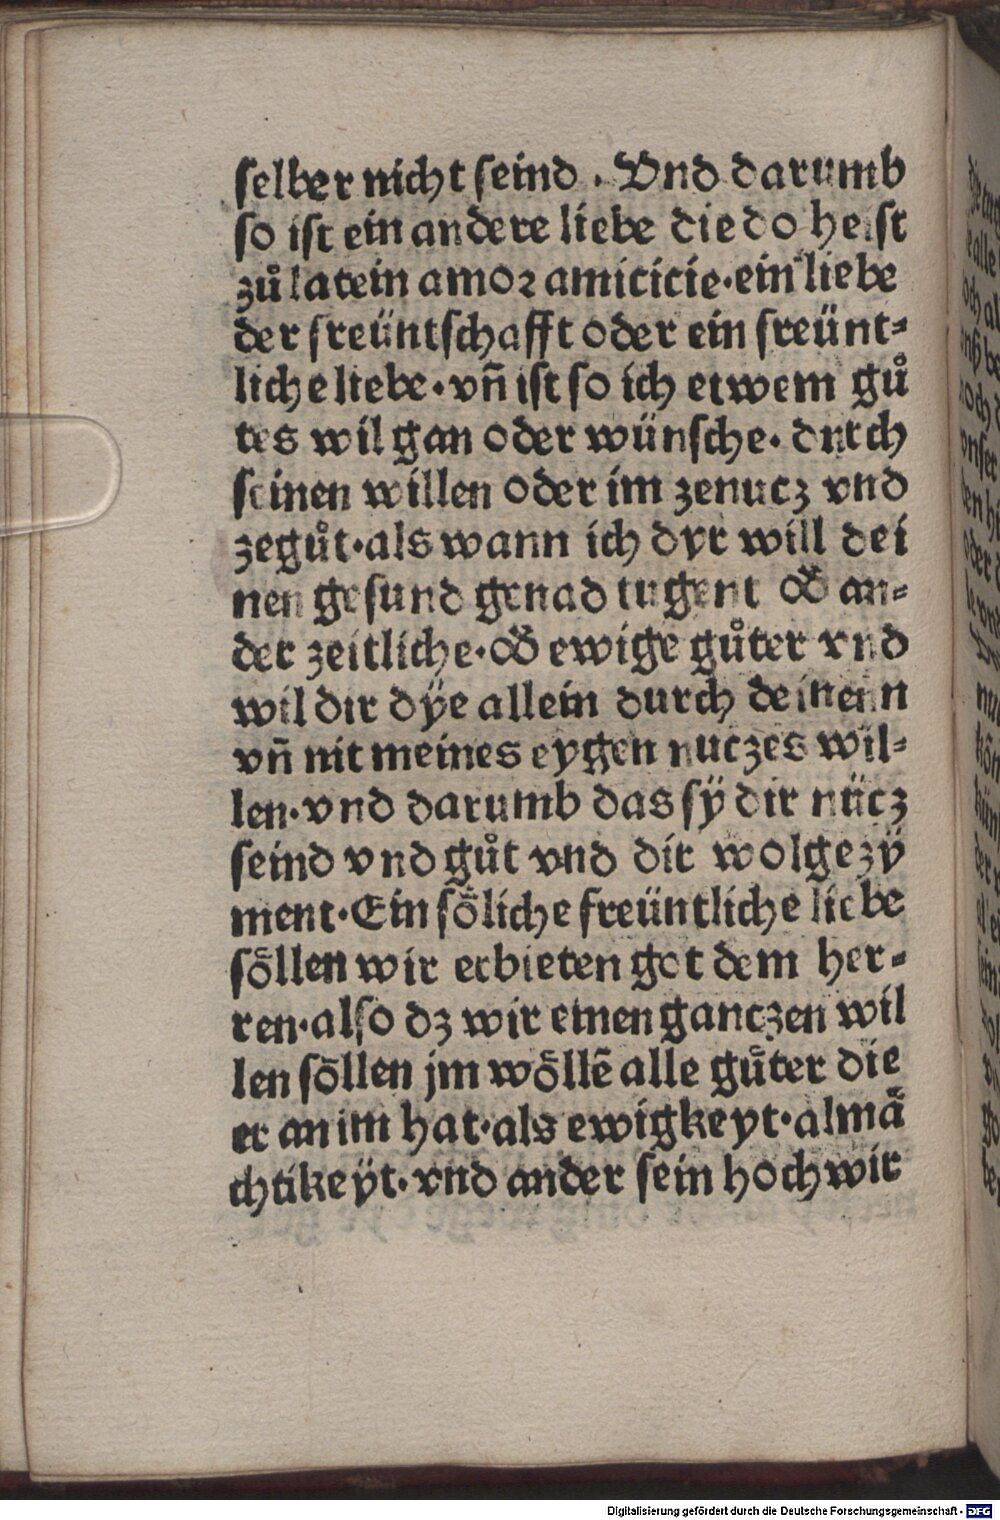 selber nicht seind. Vnd darumb
so ist ein andere liebe die do heist
zů latein amor amicicie·ein liebe
der freüntschafft oder ein freünt-
liche liebe·vñ ist so ich etwem gů
tes wil gan oder wünsche·durch
seinen willen oder im zenucz vnd
zegůt·als wann ich dyr will dei
nen gesund genad tugent oď an-
der zeitliche·oď ewige gůter vnd
wil dir dÿe allein durch deinenn
vñ nit meines eygen nuczes wil-
len·vnd darumb das sÿ dir nücz
seind vnd gůt vnd dir wolgezÿ
ment·Ein söliche freüntliche liebe
söllen wir erbieten got dem her-
ren·also dz wir einen ganczen wil
len söllen jm wöllē alle gůter die
er an im hat·als ewigkeyt·almä
chtikeÿt·vnd ander sein hochwir
Digitalisierung gefördert durch die Deutsche Forschungsgemeinschaft - DFG